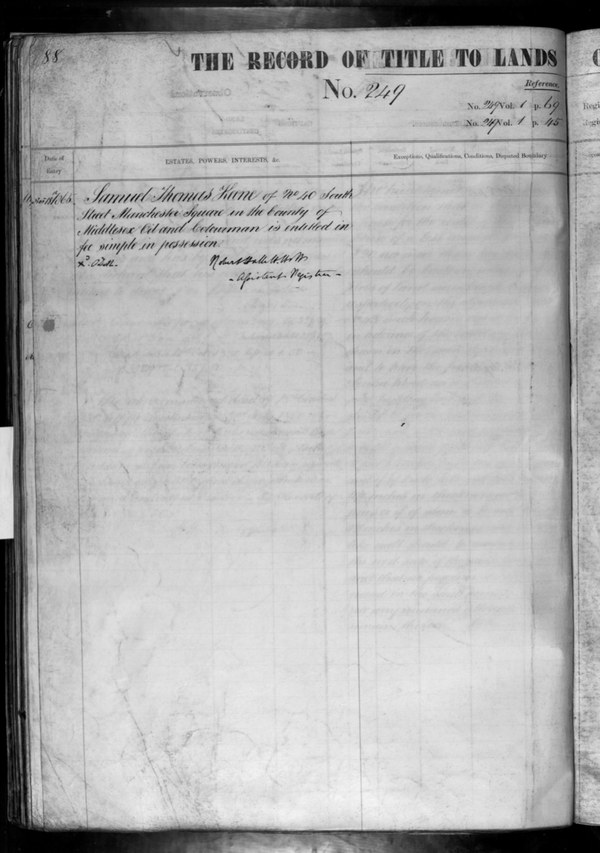 88
THE RECORD OF TITLE TO LANDS
No. 249
Reference.
No. 249 Vol. 1 p. 69
No. 249 Vol. 1 p. 45
Date of Entry
ESTATES, POWERS, INTERESTS, &c.
Exceptions, Qualifications, Conditions, Disputed Boundary
Samuel Thomas Keene of No 40 South
Street Manchester Square in the County of
Middlesex Oil and Colourman is entitled in
fee simple in possession.
Robert Hallett
Assistant Registrar